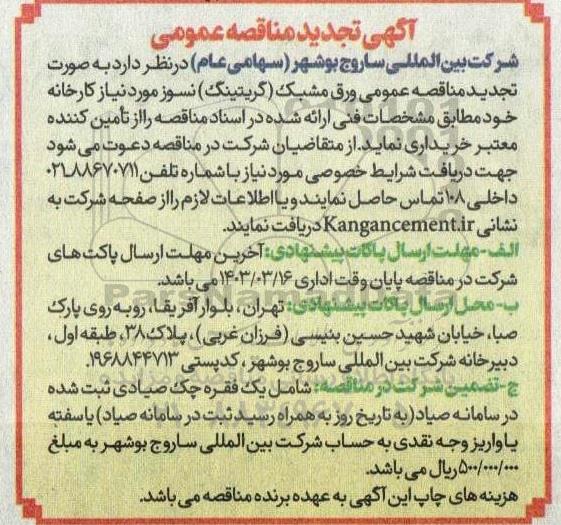 آگهی تجدید مناقصه عمومی
شرکت بین المللی ساروج بوشهر (سهامی عام) در نظر دارد به صورت
تجدید مناقصه عمومی ورق مشبک (گریتینگ) نسوز مورد نیاز کارخانه
خود مطابق مشخصات فنی ارائه شده در اسناد مناقصه را از تأمین کننده
معتبر خریداری نماید. از متقاضیان شرکت در مناقصه دعوت می شود
جهت دریافت شرایط خصوصی مورد نیاز با شماره تلفن ۰۲۱-۸۸۶۷۰۷۱۱
داخلی ۱۰۸ تماس حاصل نمایند و یا اطلاعات لازم را از صفحه شرکت به
نشانی Kangancement.ir دریافت نمایند.
الف- مهلت ارسال پاکات پیشنهادی: آخرین مهلت ارسال پاکت های
شرکت در مناقصه پایان وقت اداری ۱۴۰۳/۰۳/۱۶ می باشد.
ب- محل ارسال پاکات پیشنهادی: تهران، بلوار آفریقا، روبه روی پارک
صبا، خیابان شهید حسین بنیسی (فرزان غربی)، پلاک ۳۸، طبقه اول،
دبیرخانه شرکت بین المللی ساروج بوشهر، کدپستی ۱۹۶۸۸۴۴۷۱۳.
ج- تضمین شرکت در مناقصه: شامل یک فقره چک صیادی ثبت شده
در سامانه صیاد (به تاریخ روز به همراه رسید ثبت در سامانه صیاد) یا سفته
یا واریز وجه نقدی به حساب شرکت بین المللی ساروج بوشهر به مبلغ
۵۰۰/۰۰۰/۰۰۰ ریال می باشد.
هزینه های چاپ این آگهی به عهده برنده مناقصه می باشد.